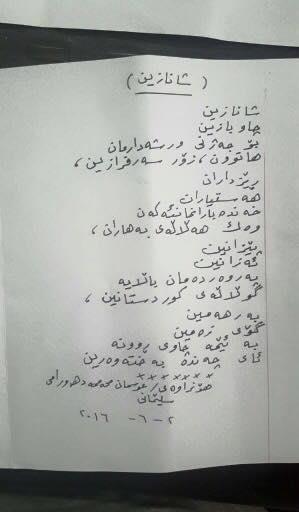 ( شانازین )
شانازین
چاو بازین
بۆ جەژنی وشەدارمان
هاتوون، زۆر سەرفرازین،
ڕێزداران
هەستیاران
خەندە بارانمانئەکەن
وەك هەڵاڵەی بەهاران،
بێزانین
ئەزانین
پەروەردەمان باڵایە
گوڵاڵەی کوردستانین،
بەرهەمین
گۆی زەمین
بە ئێمە چاوی ڕوونە
ئای چەندە بەختەوەرین
×××××××
هۆنراوەی/ عوسمان محەمەد هەورامی
سلێمانی
٢ - ٦ - ٢٠١٦